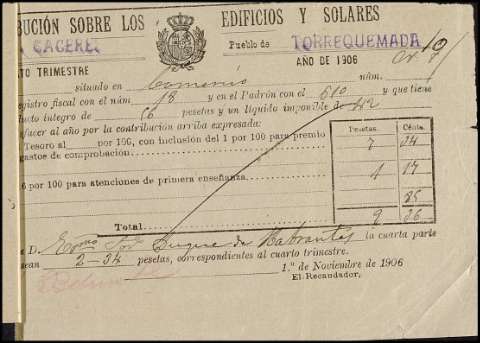 BUCIÓN SOBRE LOS EDIFICIOS Y SOLARES
CACERES Pueblo de TORREQUEMADA
TO TRIMESTRE AÑO DE 1906
situado en núm.
gistro fiscal con el núm. 18 y en el Padrón con el 610 y que tiene
ducto íntegro de 56 pesetas y un líquido imponible de 42
facer al año por la contribución arriba expresada:
Tesoro al por 100, con inclusión del 1 por 100 para premio
gastos de comprobación
Pesetas. Cénts.
7 34
6 por 100 para atenciones de primera enseñanza
1 17
85
Total 9 36
D. Excmo Sor Duque de Habrantes la cuarta parte
sean 2-34 pesetas, correspondientes al cuarto trimestre.
1.º de Noviembre de 1906
El Recaudador,